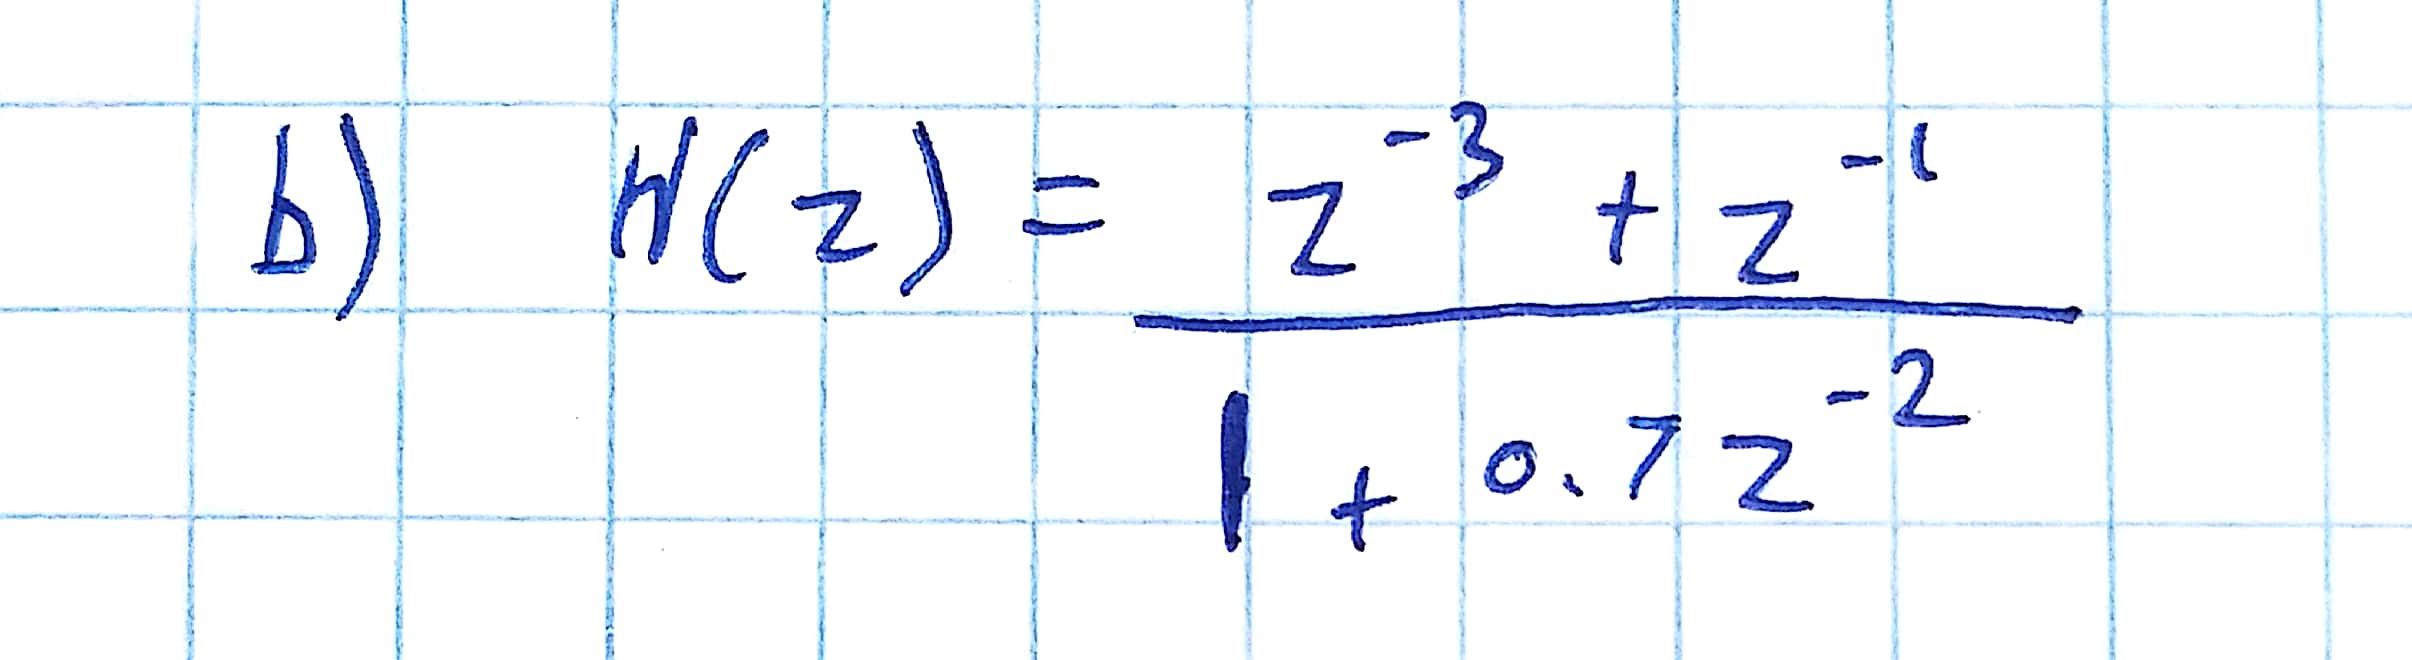 b) H(z) = z⁻³ + z⁻¹
1 + 0.7z⁻²